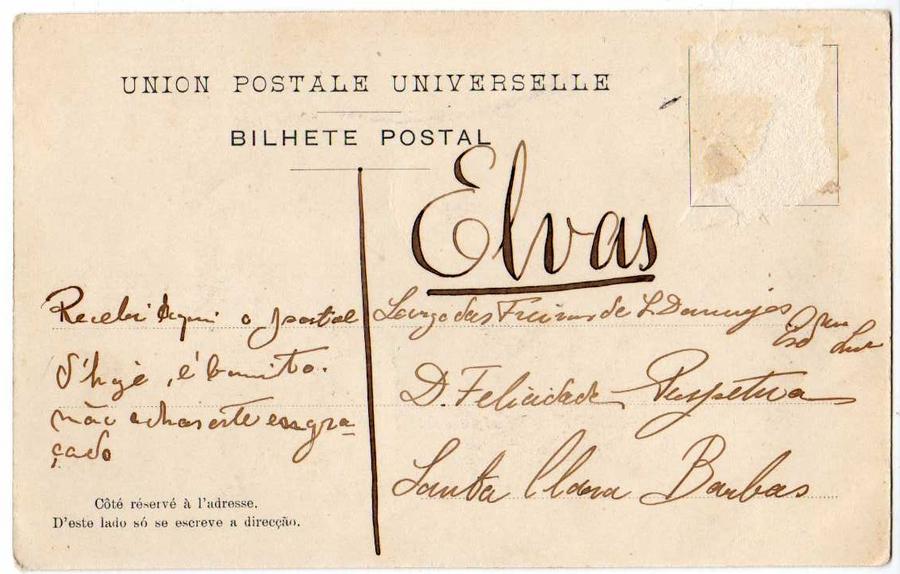 UNION POSTALE UNIVERSELLE
BILHETE POSTAL
Elvas
Recebi aqui o postal
d'hoje, é bonito.
não achas este engra-
çado
Largo das Freiras de S. Domingos
D. Felicidade Perpetua
Santa Clara Barbas
Côté réservé à l'adresse.
D'este lado só se escreve a direcção.